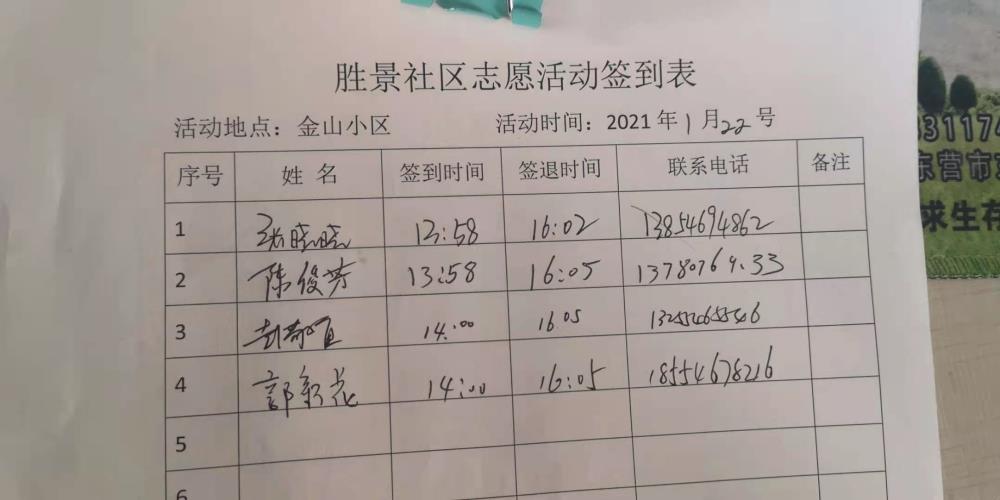 胜景社区志愿活动签到表
活动地点：金山小区 活动时间：2021年1月22号
序号 姓名 签到时间 签退时间 联系电话 备注
1 张晓晓 13:58 16:02 13854694862
2 陈俊芳 13:58 16:05
3 14:00 16:05 13255465546
4 郭新花 14:00 16:05 18554678216
5
6
33117
东营市
求生存